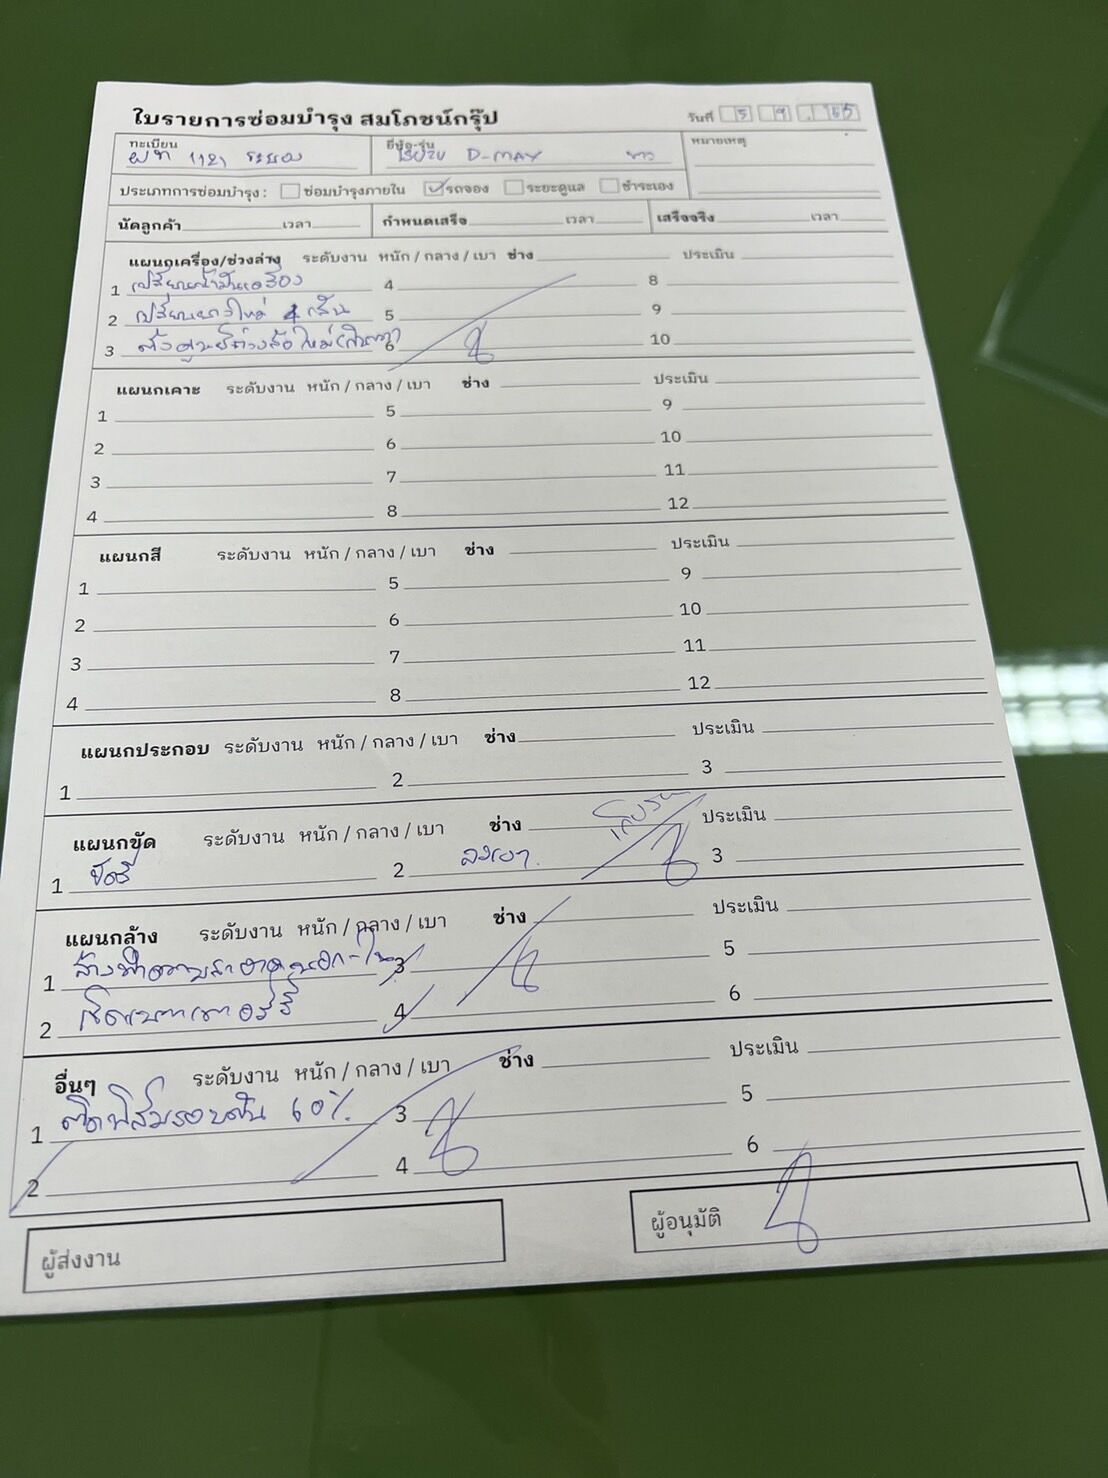 ใบรายการซ่อมบำรุง สมโภชน์กรุ๊ป
วันที่ 5 9 65
ทะเบียน ยี่ห้อ-รุ่น หมายเหตุ
ผท 1121 ระยอง D-MAX ขาว
ประเภทการซ่อมบำรุง : ซ่อมบำรุงภายใน รถจอง ระยะดูแล ชำระเอง
นัดลูกค้า เวลา กำหนดเสร็จ เวลา เสร็จจริง เวลา
แผนกเครื่อง/ช่วงล่าง ระดับงาน หนัก / กลาง / เบา ช่าง ประเมิน
1 เปลี่ยนน้ำมันเครื่อง 4 8
2 เปลี่ยนยางใหม่ 4 เส้น 5 9
3 ตั้งศูนย์ถ่วงล้อใหม่ 6 10
แผนกเคาะ ระดับงาน หนัก / กลาง / เบา ช่าง ประเมิน
1 5 9
2 6 10
3 7 11
4 8 12
แผนกสี ระดับงาน หนัก / กลาง / เบา ช่าง ประเมิน
1 5 9
2 6 10
3 7 11
4 8 12
แผนกประกอบ ระดับงาน หนัก / กลาง / เบา ช่าง ประเมิน
1 2 3
แผนกขัด ระดับงาน หนัก / กลาง / เบา ช่าง ประเมิน
1 ขัดสี 2 ลงเงา 3
แผนกล้าง ระดับงาน หนัก / กลาง / เบา ช่าง ประเมิน
1 ล้างทำความสะอาดนอก-ใน 3 5
2 เช็คแบตเตอรี่ 4 6
อื่นๆ ระดับงาน หนัก / กลาง / เบา ช่าง ประเมิน
1 ติดฟิล์มรอบคัน 60% 3 5
2 4 6
ผู้ส่งงาน ผู้อนุมัติ